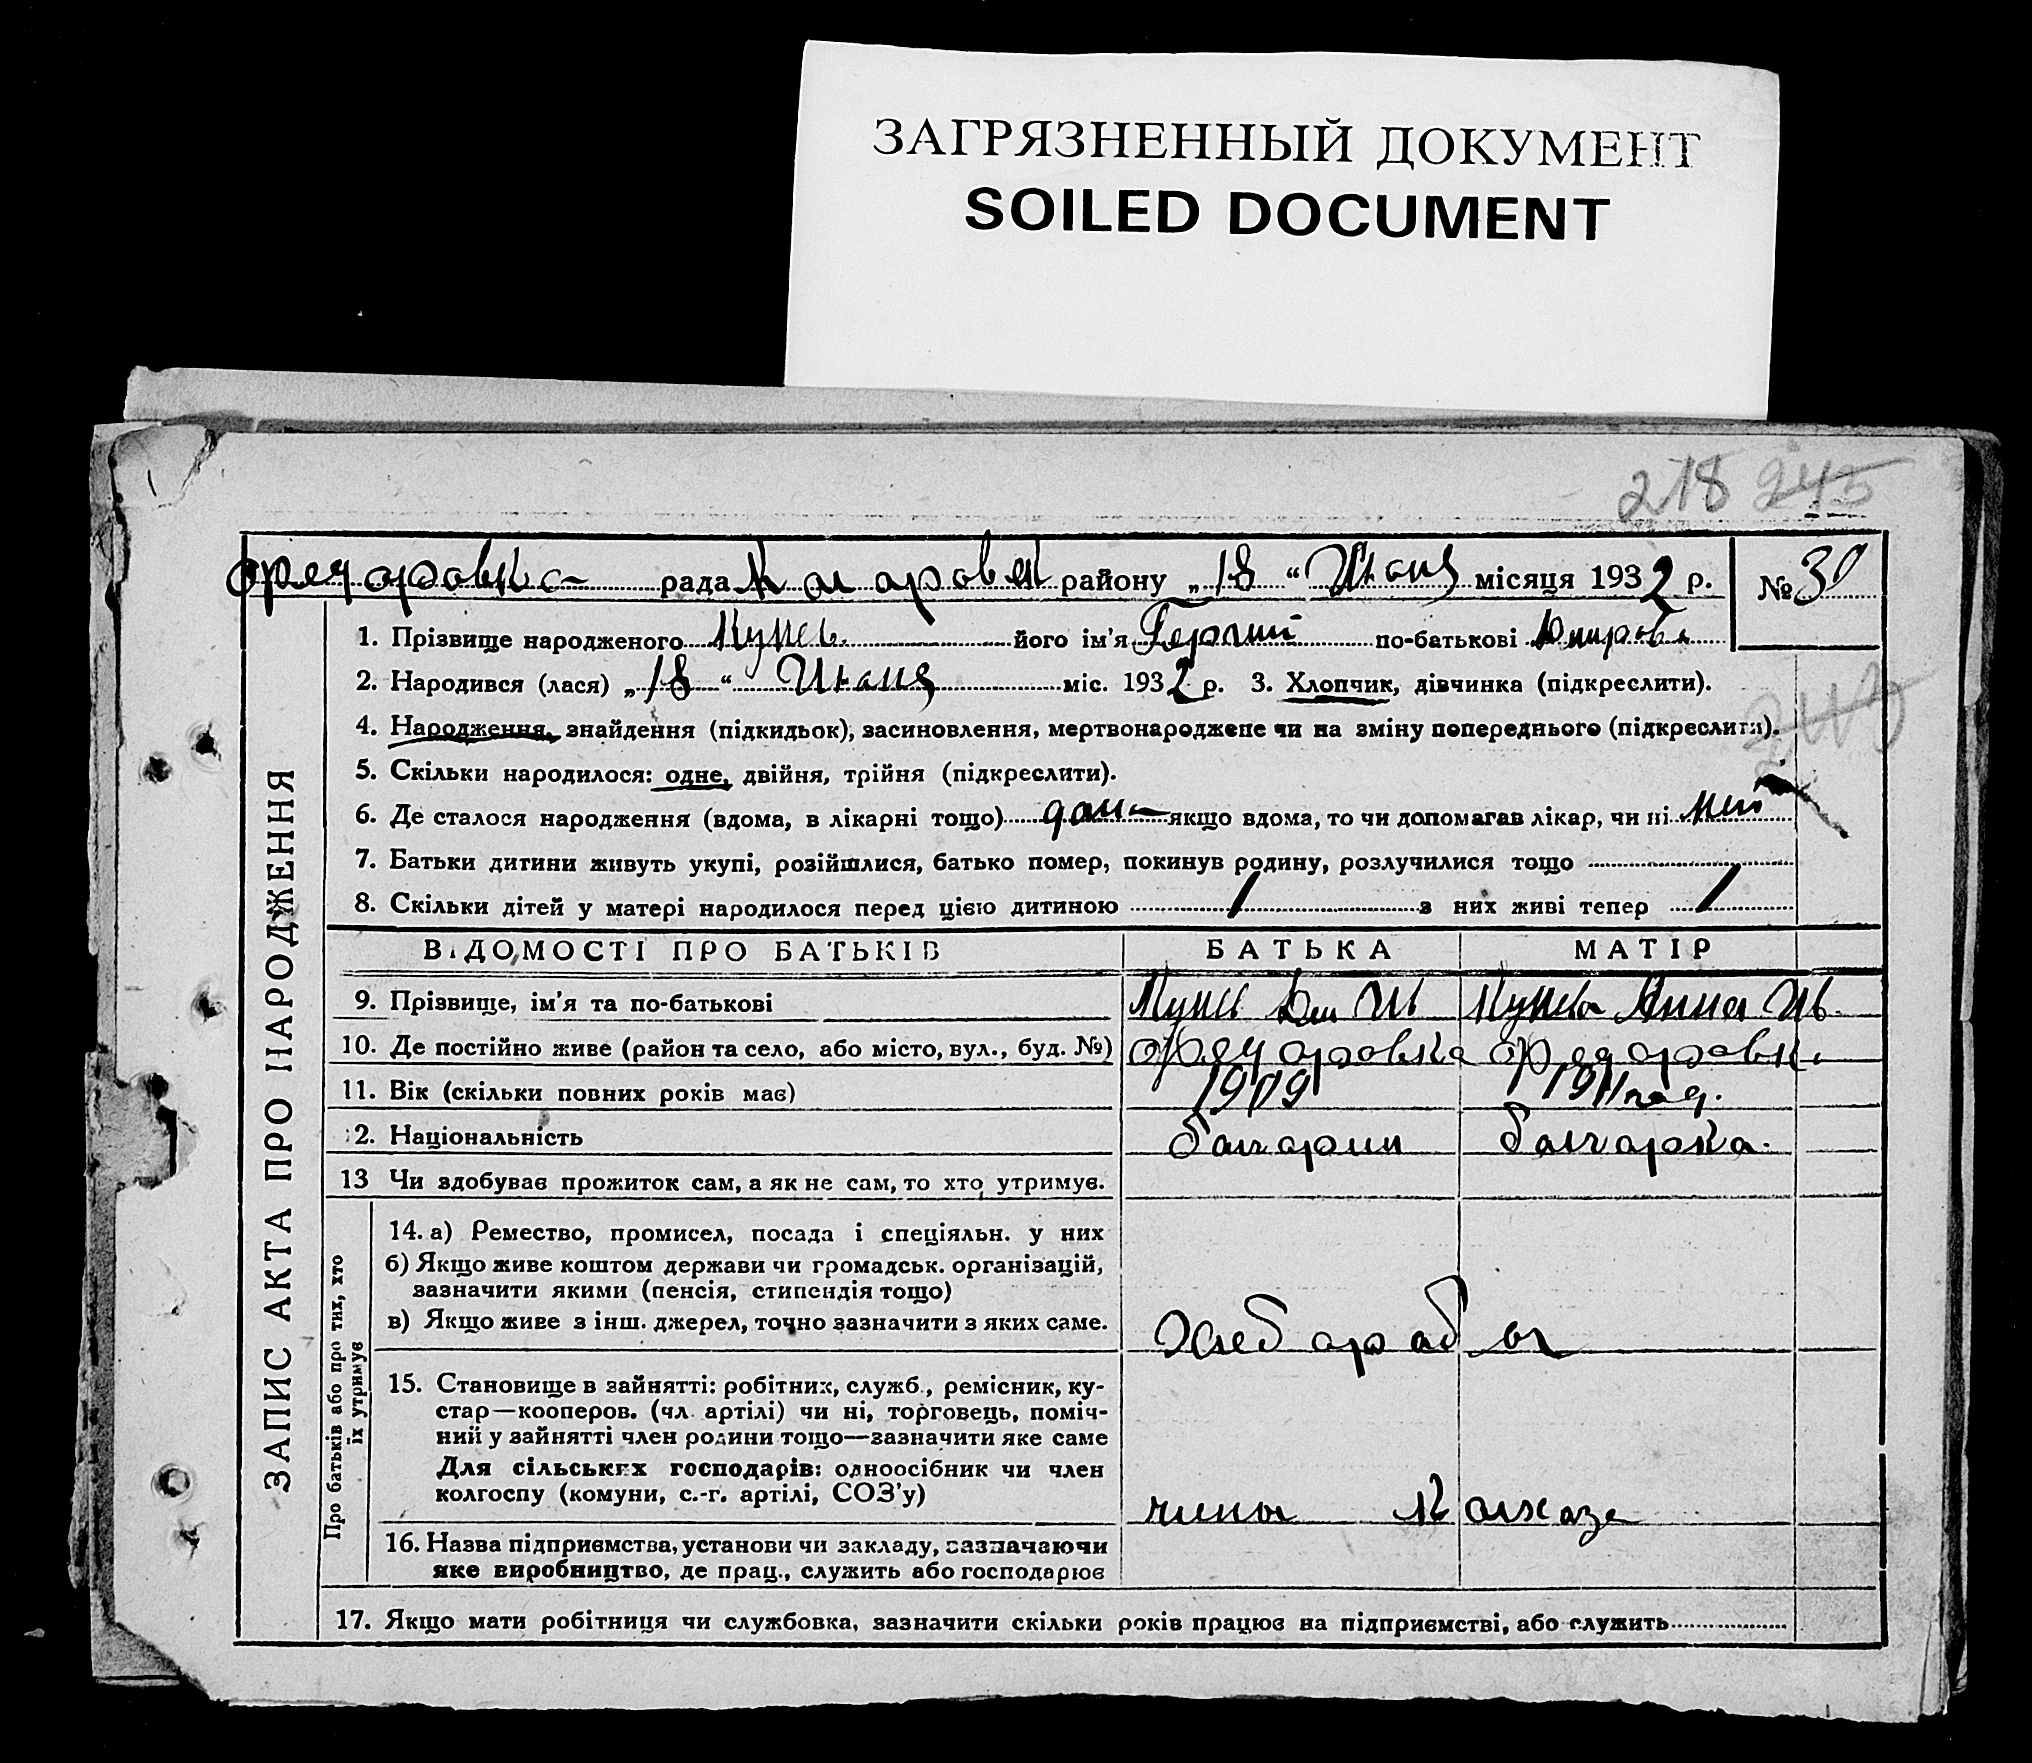 ЗАГРЯЗНЕННЫЙ ДОКУМЕНТ
SOILED DOCUMENT
218 245
Федоровка рада Комаров району „18“ июня місяця 1932 р. №30
1. Прізвище народженого його ім'я Георгий по-батькові
2. Народився (лася) „18“ июня міс. 1932 р. 3. Хлопчик, дівчинка (підкреслити).
4. Народження, знайдення (підкидьок), засиновлення, мертвонароджене чи на зміну попереднього (підкреслити).
5. Скільки народилося: одне, двійня, трійня (підкреслити).
6. Де сталося народження (вдома, в лікарні тощо) дома якщо вдома, то чи допомагав лікар, чи ні
7. Батьки дитини живуть укупі, розійшлися, батько помер, покинув родину, розлучилися тощо
8. Скільки дітей у матері народилося перед цією дитиною 1 з них живі тепер 1
ВІДОМОСТІ ПРО БАТЬКІВ БАТЬКА МАТІР
9. Прізвище, ім'я та по-батькові Ив Анна Ив.
10. Де постійно живе (район та село, або місто, вул., буд. №) Федоровка Федоровка
11. Вік (скільки повних років має) 1909 1911 год.
12. Національність болгарин болгарка.
13 Чи здобував прожиток сам, а як не сам, то хто утримує.
14. а) Ремество, промисел, посада і спеціяльн. у них
б) Якщо живе коштом держави чи громадськ. організацій,
зазначити якими (пенсія, стипендія тощо)
в) Якщо живе з інш. джерел, точно зазначити з яких саме. хлебороб
15. Становище в зайнятті: робітник, служб., ремісник, ку-
стар—кооперов. (чл. артілі) чи ні, торговець, поміч-
ний у зайнятті член родини тощо—зазначити яке саме
Для сільських господарів: одноосібник чи член
колгоспу (комуни, с.-г. артілі, СОЗ'у) члены колхоза
16. Назва підприємства, установи чи закладу, зазначаючи
яке виробництво, де прац., служить або господарює
17. Якщо мати робітниця чи службовка, зазначити скільки років працює на підприємстві, або служить
ЗАПИС АКТА ПРО НАРОДЖЕННЯ
Про батьків або про тих, хто
їх утримує